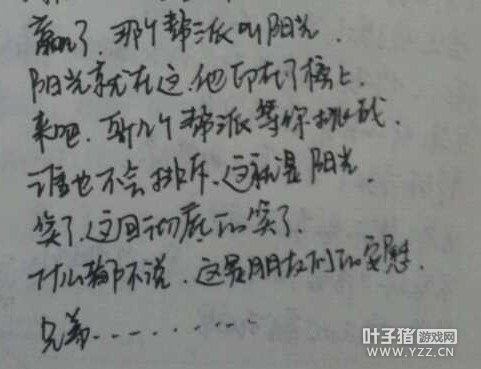 赢了，那个帮派叫阳光．
阳光就在这．他印在了榜上．
来吧．那几个帮派等你挑战．
谁也不会排斥．这就是阳光．
笑了．这回彻底的笑了．
什么都不说．这是朋友们的安慰．
兄弟．．．．．．．．．
叶子猪游戏网
WWW.YZZ.CN